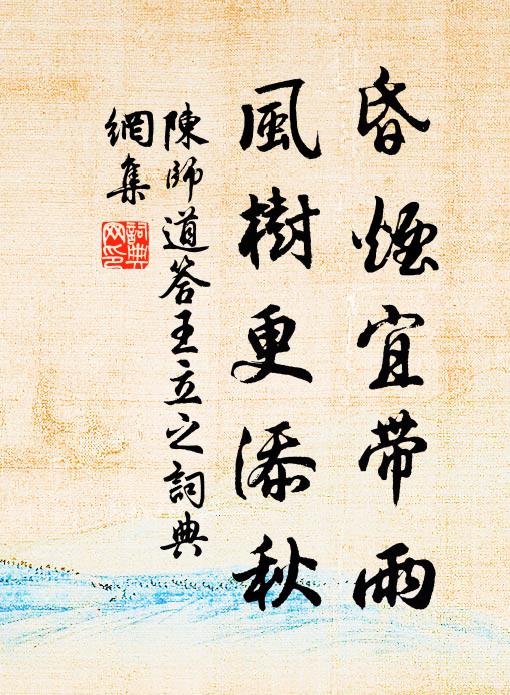 昏煙宜帶雨
風樹更添秋
陳師道答王立之詞典
網集
詞典
网印